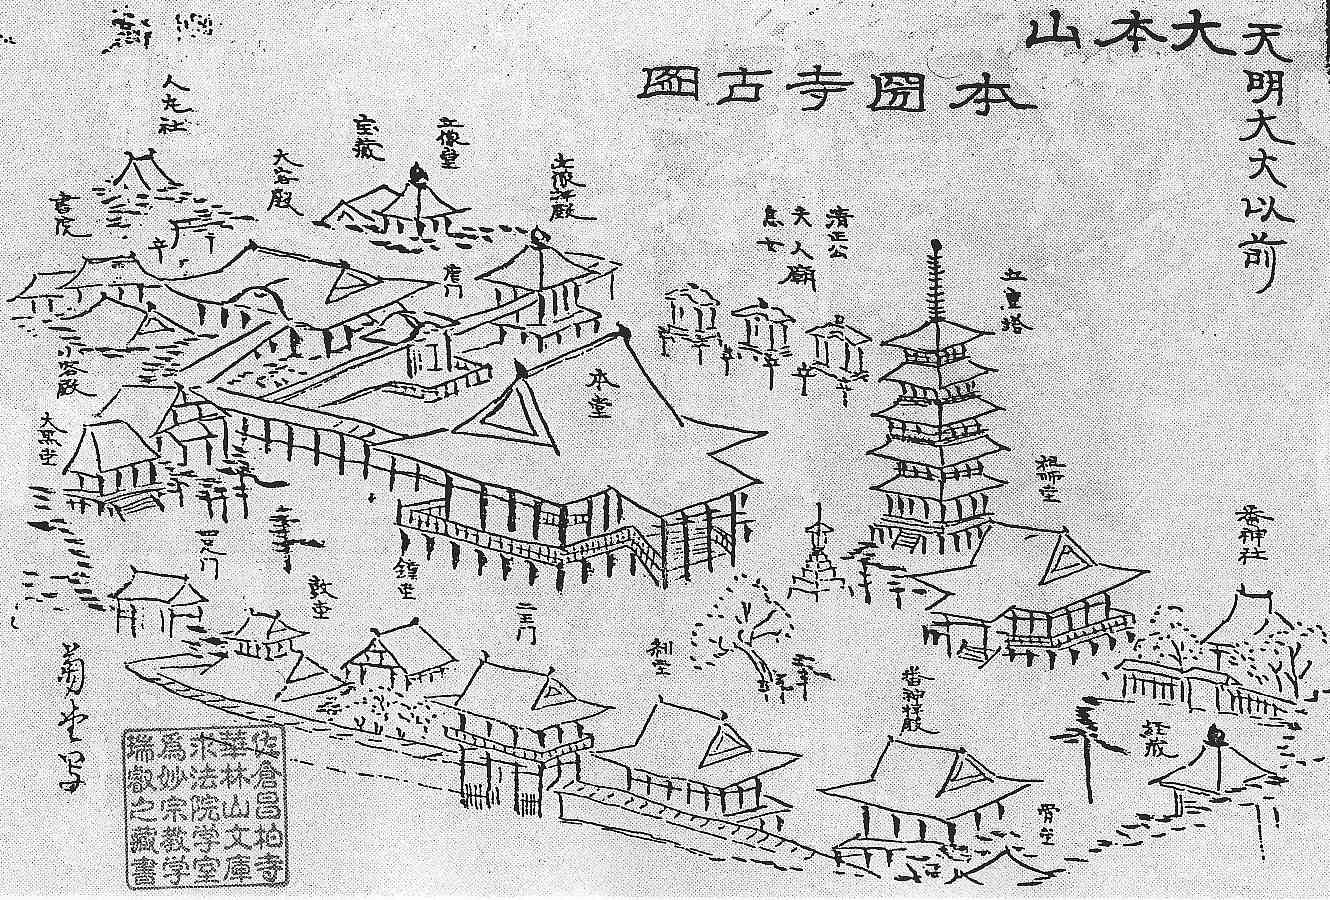 天明大火以前
大本山
本圀寺古図
五重塔
清正公
夫人廟
息女
立像拝殿
立像堂
宝蔵
大客殿
人丸社
書院
唐门
本堂
小客殿
大黒堂
祖师堂
番神社
鼓堂
鐘堂
二王门
刹堂
番神拝殿
経蔵
骨堂
菊堂写
佐倉昌柏寺
華林山文庫
求法院学室
為妙宗教学
瑞叡之蔵書